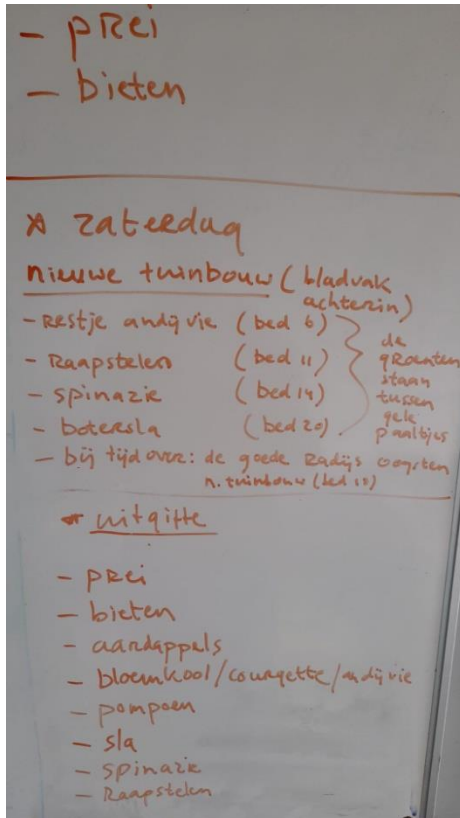 - prei
- bieten
* zaterdag
nieuwe tuinbouw (bladvak achterin)
- Restje andijvie (bed 6)
- Raapstelen (bed 11)
- Spinazie (bed 14)
- botersla (bed 20)
de
groenten
staan
tussen
gele
paaltjes
- bij tijd over: de goede Radijs oogsten
n. tuinbouw (bed
* uitgifte
- prei
- bieten
- aardappels
- bloemkool/courgette/andijvie
- pompoen
- sla
- Spinazie
- Raapstelen